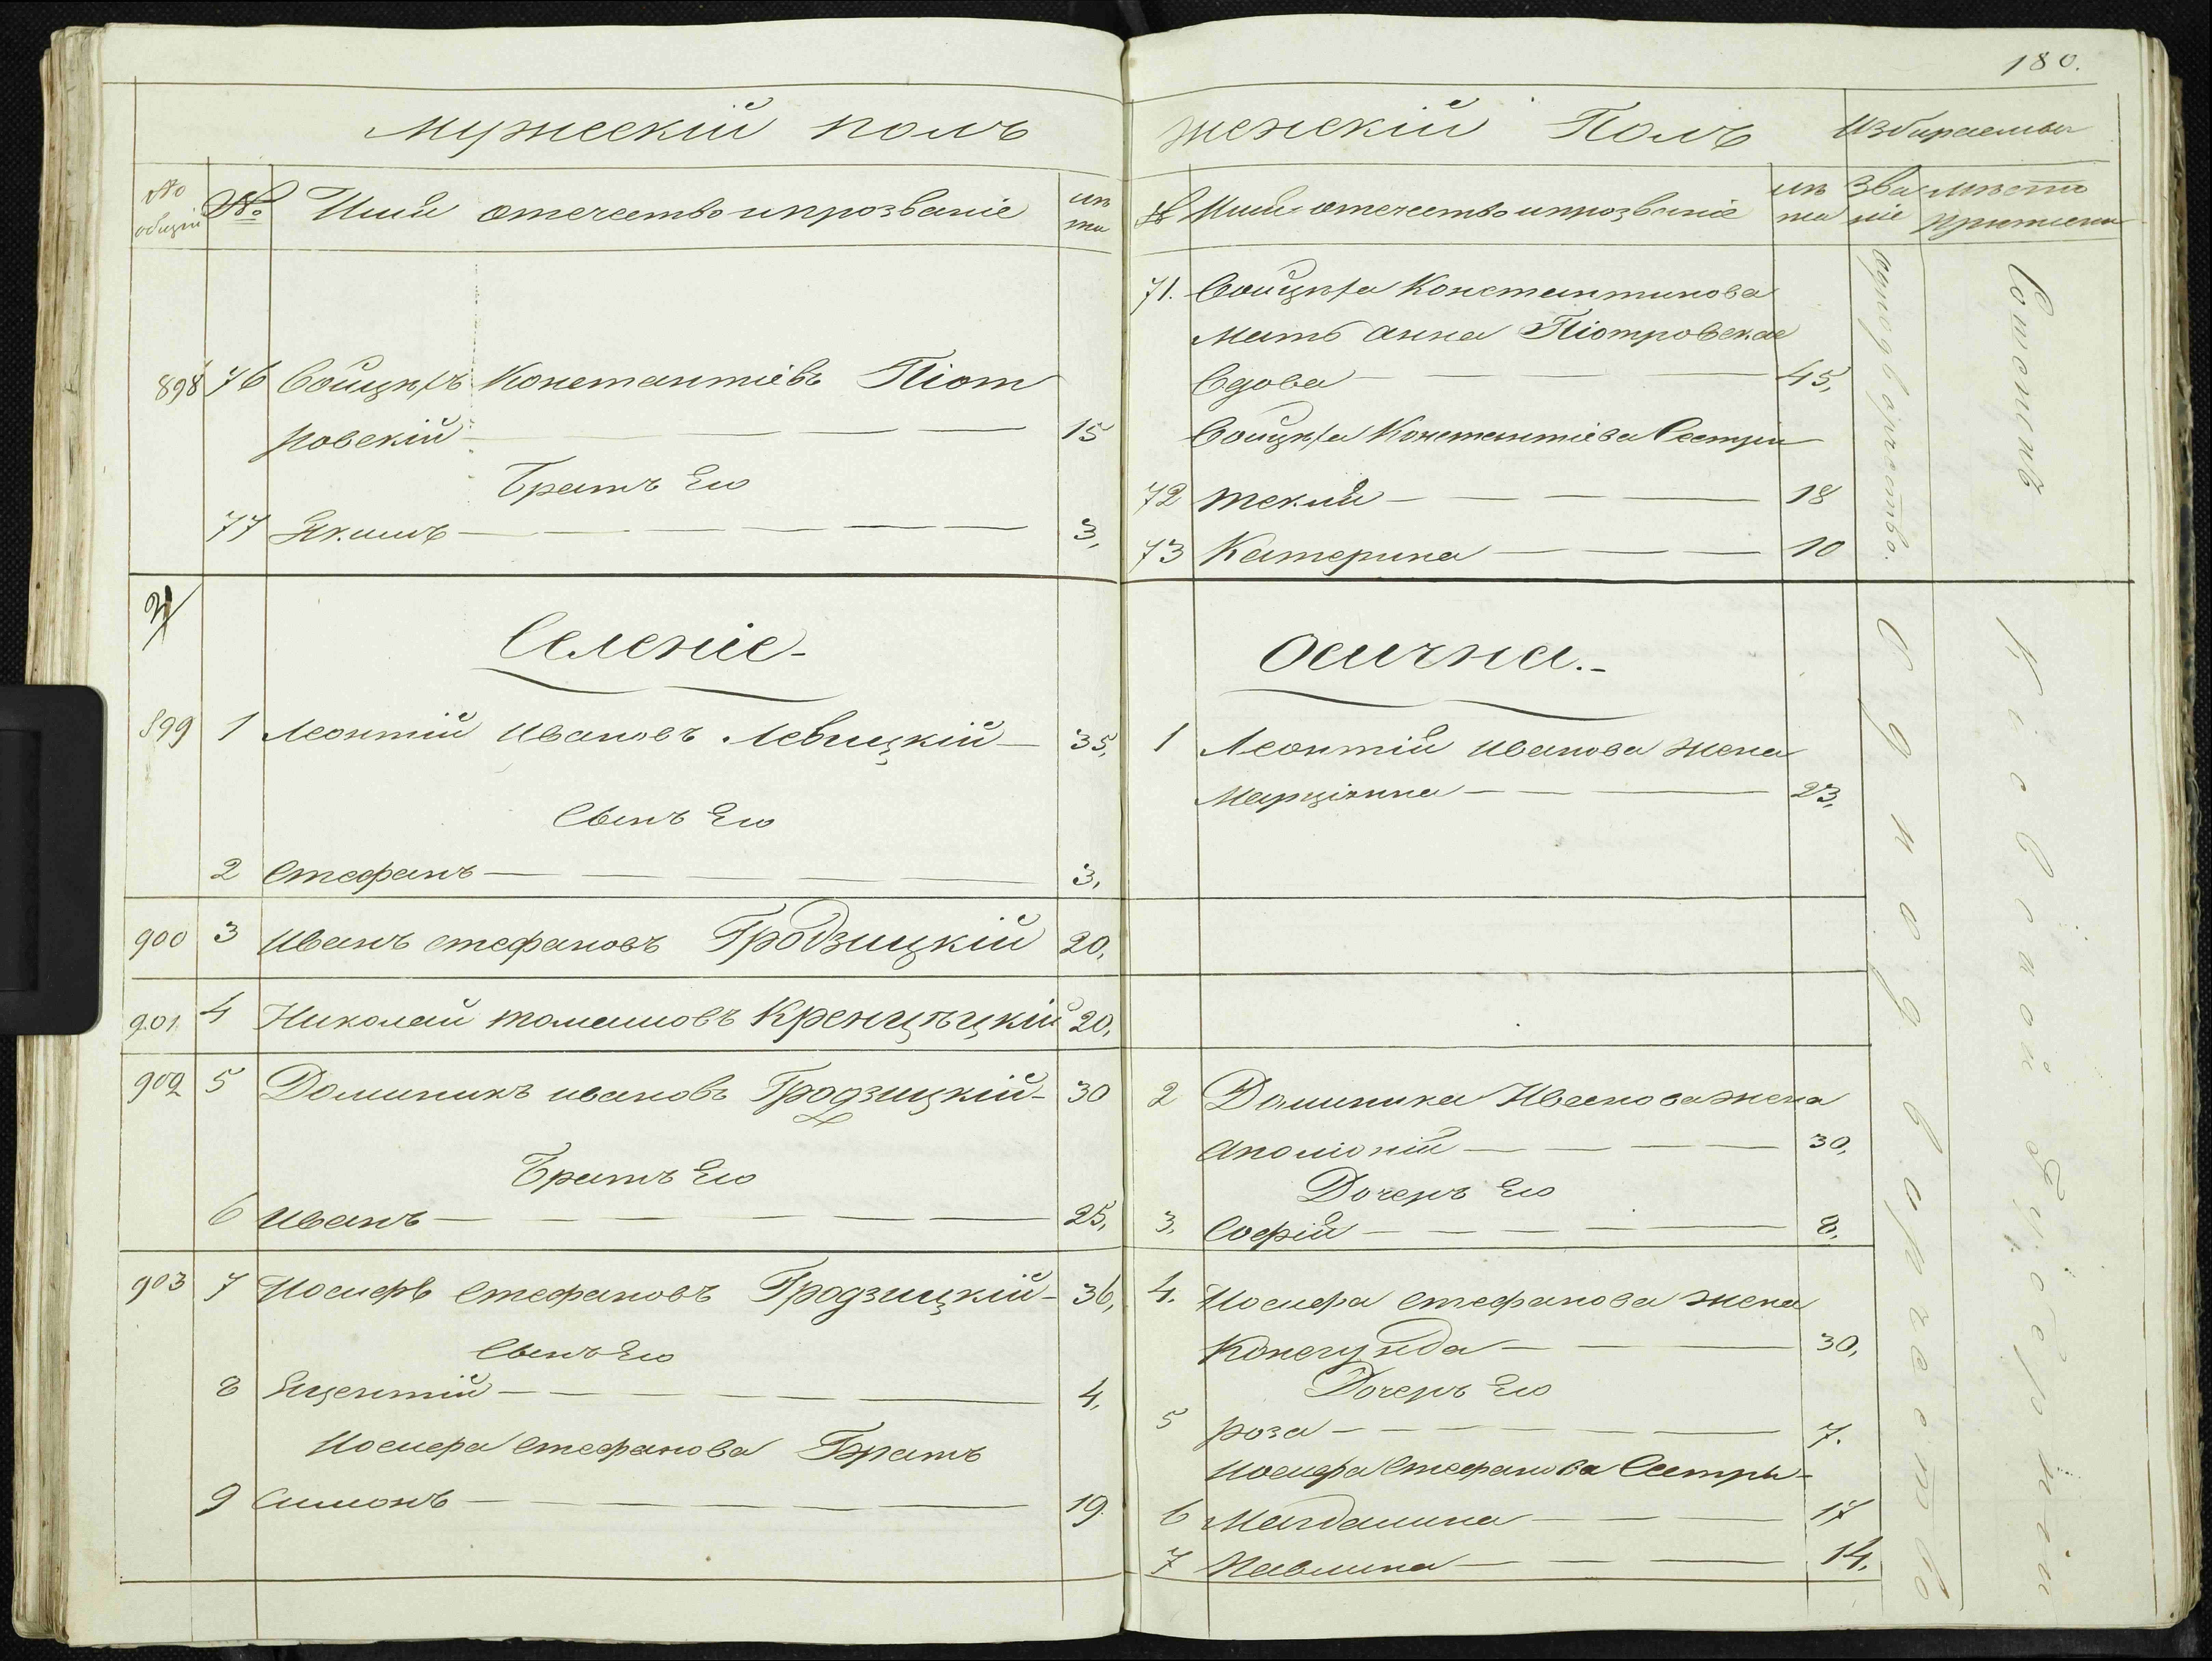 180.
Мужескій полъ
No общій
№
Имя отечество и прозваніе
лѣта
898 76 Войцѣхъ Константіевъ Піот
ровскій — 15
Братъ Его
77 Якимъ — 3,
2
Селеніе
899 1 Леонтій Ивановъ Левицкій — 35,
Сынъ Его
2 Стефанъ — 3,
900 3 Иванъ стефановъ Гродзицкій 20,
901 4 Николай томашовъ Кренцѣцкій 20,
902 5 Доминикъ ивановъ Гродзицкій — 30
Братъ Его
6 Иванъ — 25,
903 7 Иосифъ Стефановъ Гродзицкій — 36,
Сынъ Его
8 — 4,
Иосифа Стефанова Братъ
9 Симонъ — 19.
женскій Полъ
Избираемы
№
Имя отечество и прозваніе
лѣта
Званіе
мѣсто
71. Войцѣха Константинова
Мать Анна Піотровская
Вдова — 45,
Войцѣха Константіева Сестри
72 Текля — 18
73 Катерина — 10
однодворчество.
Осична.
1 Леонтій Иванова жена
Марціянна — 23,
2 Доминика Иванова жена
Аполіонія — 30,
Дочерь Его
3. Софія — 8,
4. Иосифа стефанова жена
Конегунда — 30,
Дочерь Его
5 роза — 7.
Иосифа Стефанова Сестры
6 Магдалина — 17
7 Павлина — 14.
Однодворчество
Кіевской Губерніи